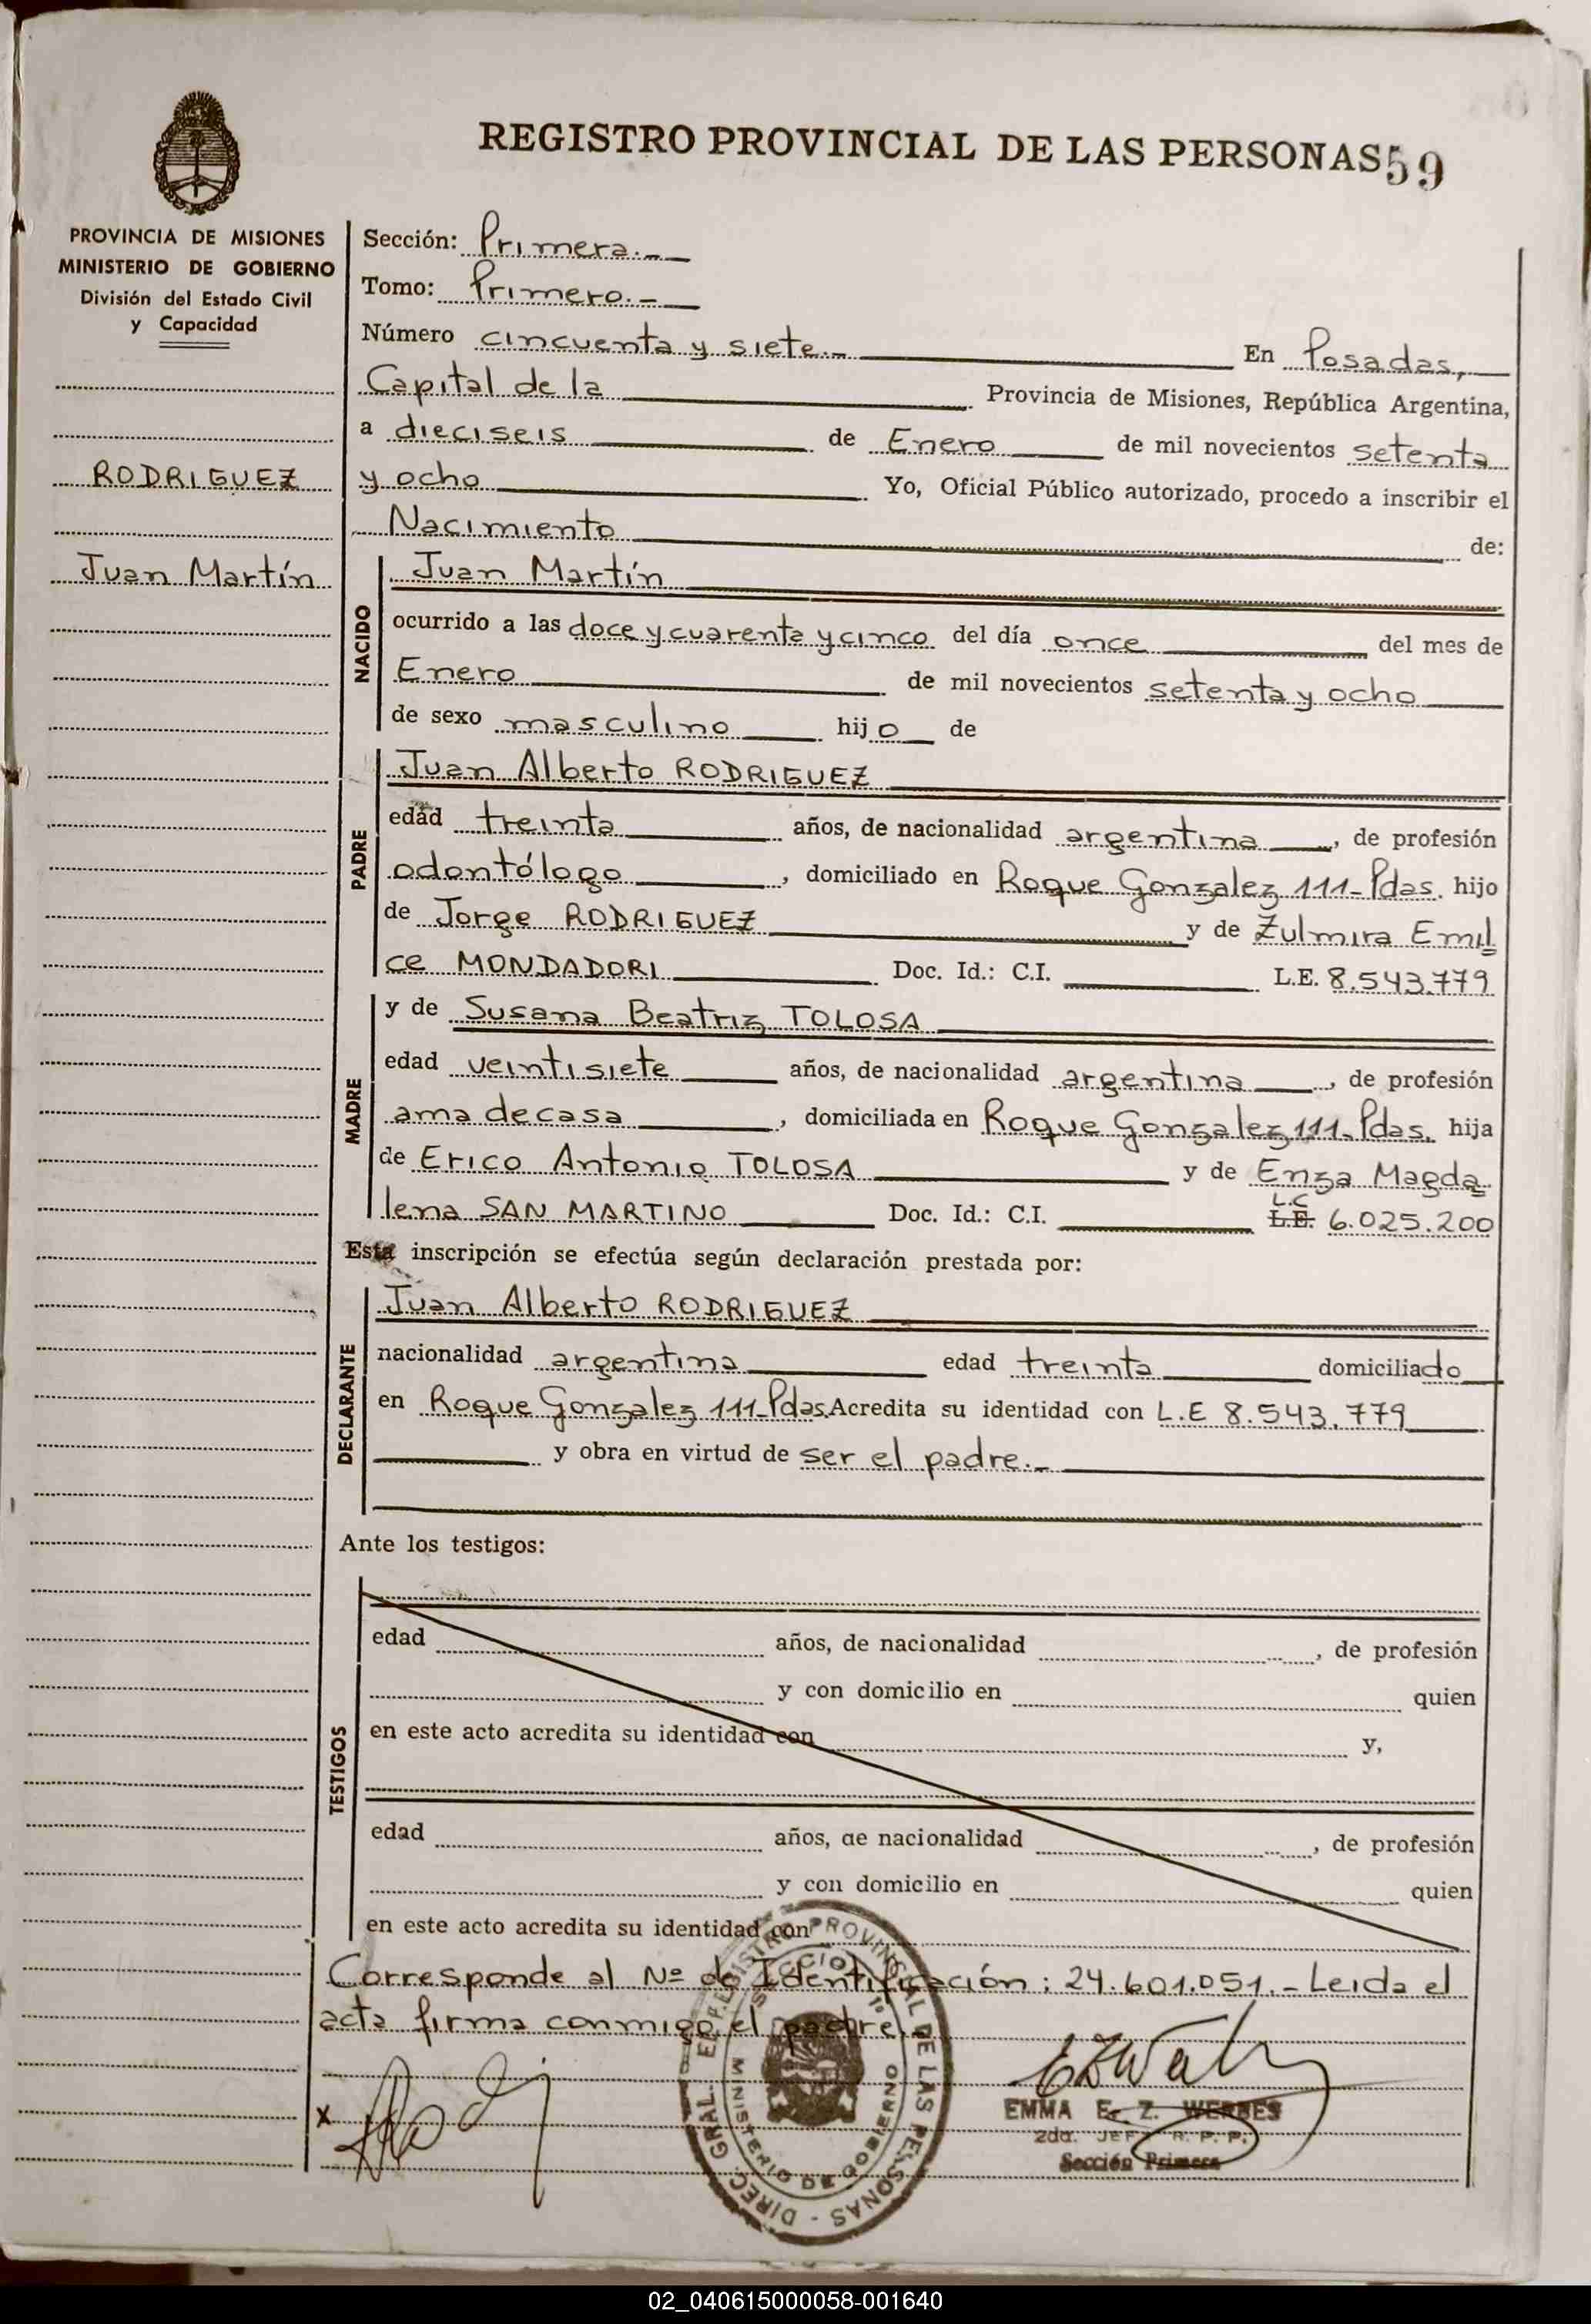 REGISTRO PROVINCIAL DE LAS PERSONAS 59
PROVINCIA DE MISIONES
MINISTERIO DE GOBIERNO
División del Estado Civil
y Capacidad
RODRIGUEZ
Juan Martín
Sección: Primera.-
Tomo: Primero.-
Número cincuenta y siete.- En Posadas,
Capital de la Provincia de Misiones, República Argentina,
a dieciseis de Enero de mil novecientos setenta
y ocho Yo, Oficial Público autorizado, procedo a inscribir el
Nacimiento de:
NACIDO
Juan Martín
ocurrido a las doce y cuarenta y cinco del día once del mes de
Enero de mil novecientos setenta y ocho
de sexo masculino hijo de
PADRE
Juan Alberto RODRIGUEZ
edad treinta años, de nacionalidad argentina, de profesión
odontólogo, domiciliado en Roque Gonzalez 111-Pdas. hijo
de Jorge RODRIGUEZ y de Zulmira Emil
ce MONDADORI Doc. Id.: C.I. L.E. 8.543.779
MADRE
y de Susana Beatriz TOLOSA
edad veintisiete años, de nacionalidad argentina, de profesión
ama de casa, domiciliada en Roque Gonzalez 111-Pdas. hija
de Erico Antonio TOLOSA y de Enza Magda
lena SAN MARTINO Doc. Id.: C.I. L.C L.E. 6.025.200
Esta inscripción se efectúa según declaración prestada por:
DECLARANTE
Juan Alberto RODRIGUEZ
nacionalidad argentina edad treinta domiciliado
en Roque Gonzalez 111-Pdas. Acredita su identidad con L.E 8.543.779
y obra en virtud de ser el padre.-
Ante los testigos:
TESTIGOS
edad años, de nacionalidad , de profesión
y con domicilio en quien
en este acto acredita su identidad con y,
edad años, de nacionalidad , de profesión
y con domicilio en quien
en este acto acredita su identidad con
Corresponde al Nº de Identificación: 24.601.051.- Leida el
acta firma conmigo el padre.-
DIREC. GRAL. REGISTRO PROVINCIAL DE LAS PERSONAS
SECCION 1º
MINISTERIO DE GOBIERNO
x
EMMA E. Z. WERBES
2da. JEFE R. P. P.
Sección Primera
02_040615000058-001640